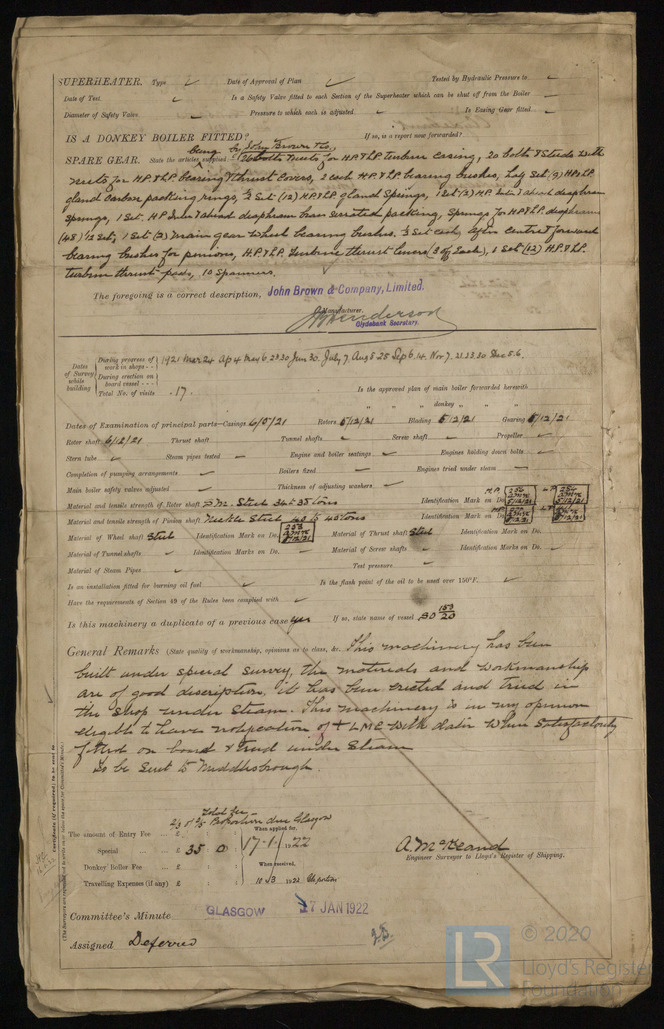 SUPERHEATER. Type ✓ Date of Approval of Plan ✓ Tested by Hydraulic Pressure to
Date of Test ✓ Is a Safety Valve fitted to each Section of the Superheater which can be shut off from the Boiler
Diameter of Safety Valve Pressure to which each is adjusted Is Easing Gear fitted
IS A DONKEY BOILER FITTED? If so, is a report now forwarded?
being by John Brown & Co.
SPARE GEAR. State the articles supplied: 26 bolts & nuts for H.P. & L.P. turbine casing, 20 bolts & studs with
nuts for H.P. & L.P. bearing & thrust covers, 2 each H.P. & L.P. bearing bushes, half set (9) H.P. & L.P.
gland carbon packing rings, ½ set (12) H.P. & L.P. gland springs, 1 set (3) H.P. & ahead diaphram
springs, 1 set H.P. & ahead diaphram serrated packing, springs for H.P. & L.P. diaphram
(48) ½ set, 1 set (2) main gear wheel bearing bushes, ½ set each, after centre & forward
bearing bushes for pinions, H.P. & L.P. turbine thrust (3 off each), 1 set (12) H.P. & L.P.
turbine thrust pads, 10 spanners.
The foregoing is a correct description, John Brown & Company, Limited.
Manufacturer.
Henderson
Clydebank Secretary.
Dates of Survey while building
During progress of work in shops - - 1921 Mar 24 Ap 4 May 6 23.30 Jun 30. July 7 Aug 8 25 Sep 6.14. Nov 7. 21.23.30 Dec 5.6.
During erection on board vessel - - -
Total No. of visits 17. Is the approved plan of main boiler forwarded herewith
" " donkey " " "
Dates of Examination of principal parts—Casings 6/5/21 Rotors 5/12/21 Blading 5/12/21 Gearing 5/12/21
Rotor shaft 6/12/21 Thrust shaft Tunnel shafts ✓ Screw shaft Propeller ✓
Stern tube ✓ Steam pipes tested Engine and boiler seatings ✓ Engines holding down bolts
Completion of pumping arrangements Boilers fixed Engines tried under steam
Main boiler safety valves adjusted Thickness of adjusting washers
Material and tensile strength of Rotor shaft S.M. Steel 34 to 35 tons Identification Mark on Do. H.P. L.P.
Material and tensile strength of Pinion shaft Nickle Steel 43 to 45 tons Identification Mark on Do. H.P. L.P.
Material of Wheel shaft Steel Identification Mark on Do. 253 5/12/21 Material of Thrust shaft Steel Identification Mark on Do.
Material of Tunnel shafts ✓ Identification Marks on Do. Material of Screw shafts Identification Marks on Do.
Material of Steam Pipes Test pressure
Is an installation fitted for burning oil fuel Is the flash point of the oil to be used over 150°F. ✓
Have the requirements of Section 49 of the Rules been complied with ✓
Is this machinery a duplicate of a previous case yes If so, state name of vessel SD 153/20
General Remarks (State quality of workmanship, opinions as to class, &c. This machinery has been
built under special survey, the materials and workmanship
are of good description, it has been erected and tried in
the shop under steam. This machinery is in my opinion
eligible to have notification of + LMC with date when satisfactorily
fitted on board & tried under steam
To be sent to Middlesbrough.
Total fee
2/3 of Proportion due Glasgow
The amount of Entry Fee ... £ : : When applied for,
Special ... £ 35 : 0 : 17-1-1922
Donkey Boiler Fee ... £ : : When received,
Travelling Expenses (if any) £ : : 10/3 1922
A. McKeand
Engineer Surveyor to Lloyd's Register of Shipping.
Committee's Minute GLASGOW 17 JAN 1922
Assigned Deferred
Certificate (if required) to be sent to
(The Surveyors are requested not to write on or below the space for Committee's Minute.)
LR © 2020
Lloyd's Register
Foundation